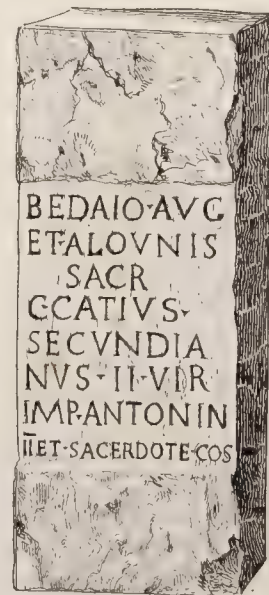 BEDAIO·AVG
ET·ALOVNIS
SACR
C·CATIVS·
SECVNDIA
NVS·II·VIR
IMP·ANTONIN
II ET·SACERDOTE·COS